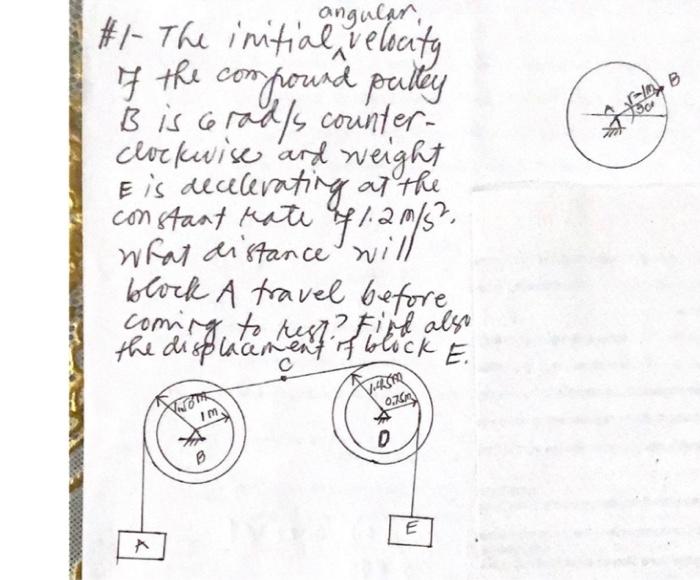 #1- The initial angular velocity
of the compound pulley
B is 6 rad/s counter-
clockwise and weight
E is decelerating at the
constant rate of 1.2 m/s².
What distance will
block A travel before
coming to rest? Find also
the displacement of block E.
A r=1m B
30°
C
1.50m
1m
B
0.75m
D
A
E